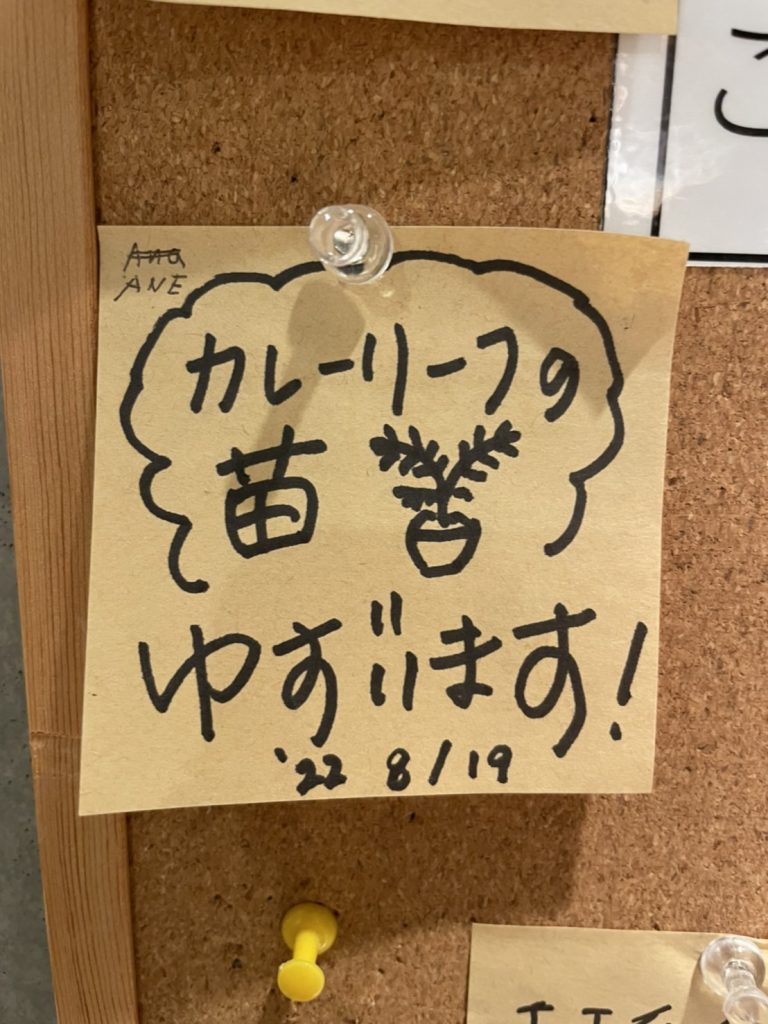 ANE
カレーリーフの
苗
ゆずります!
'22 8/19